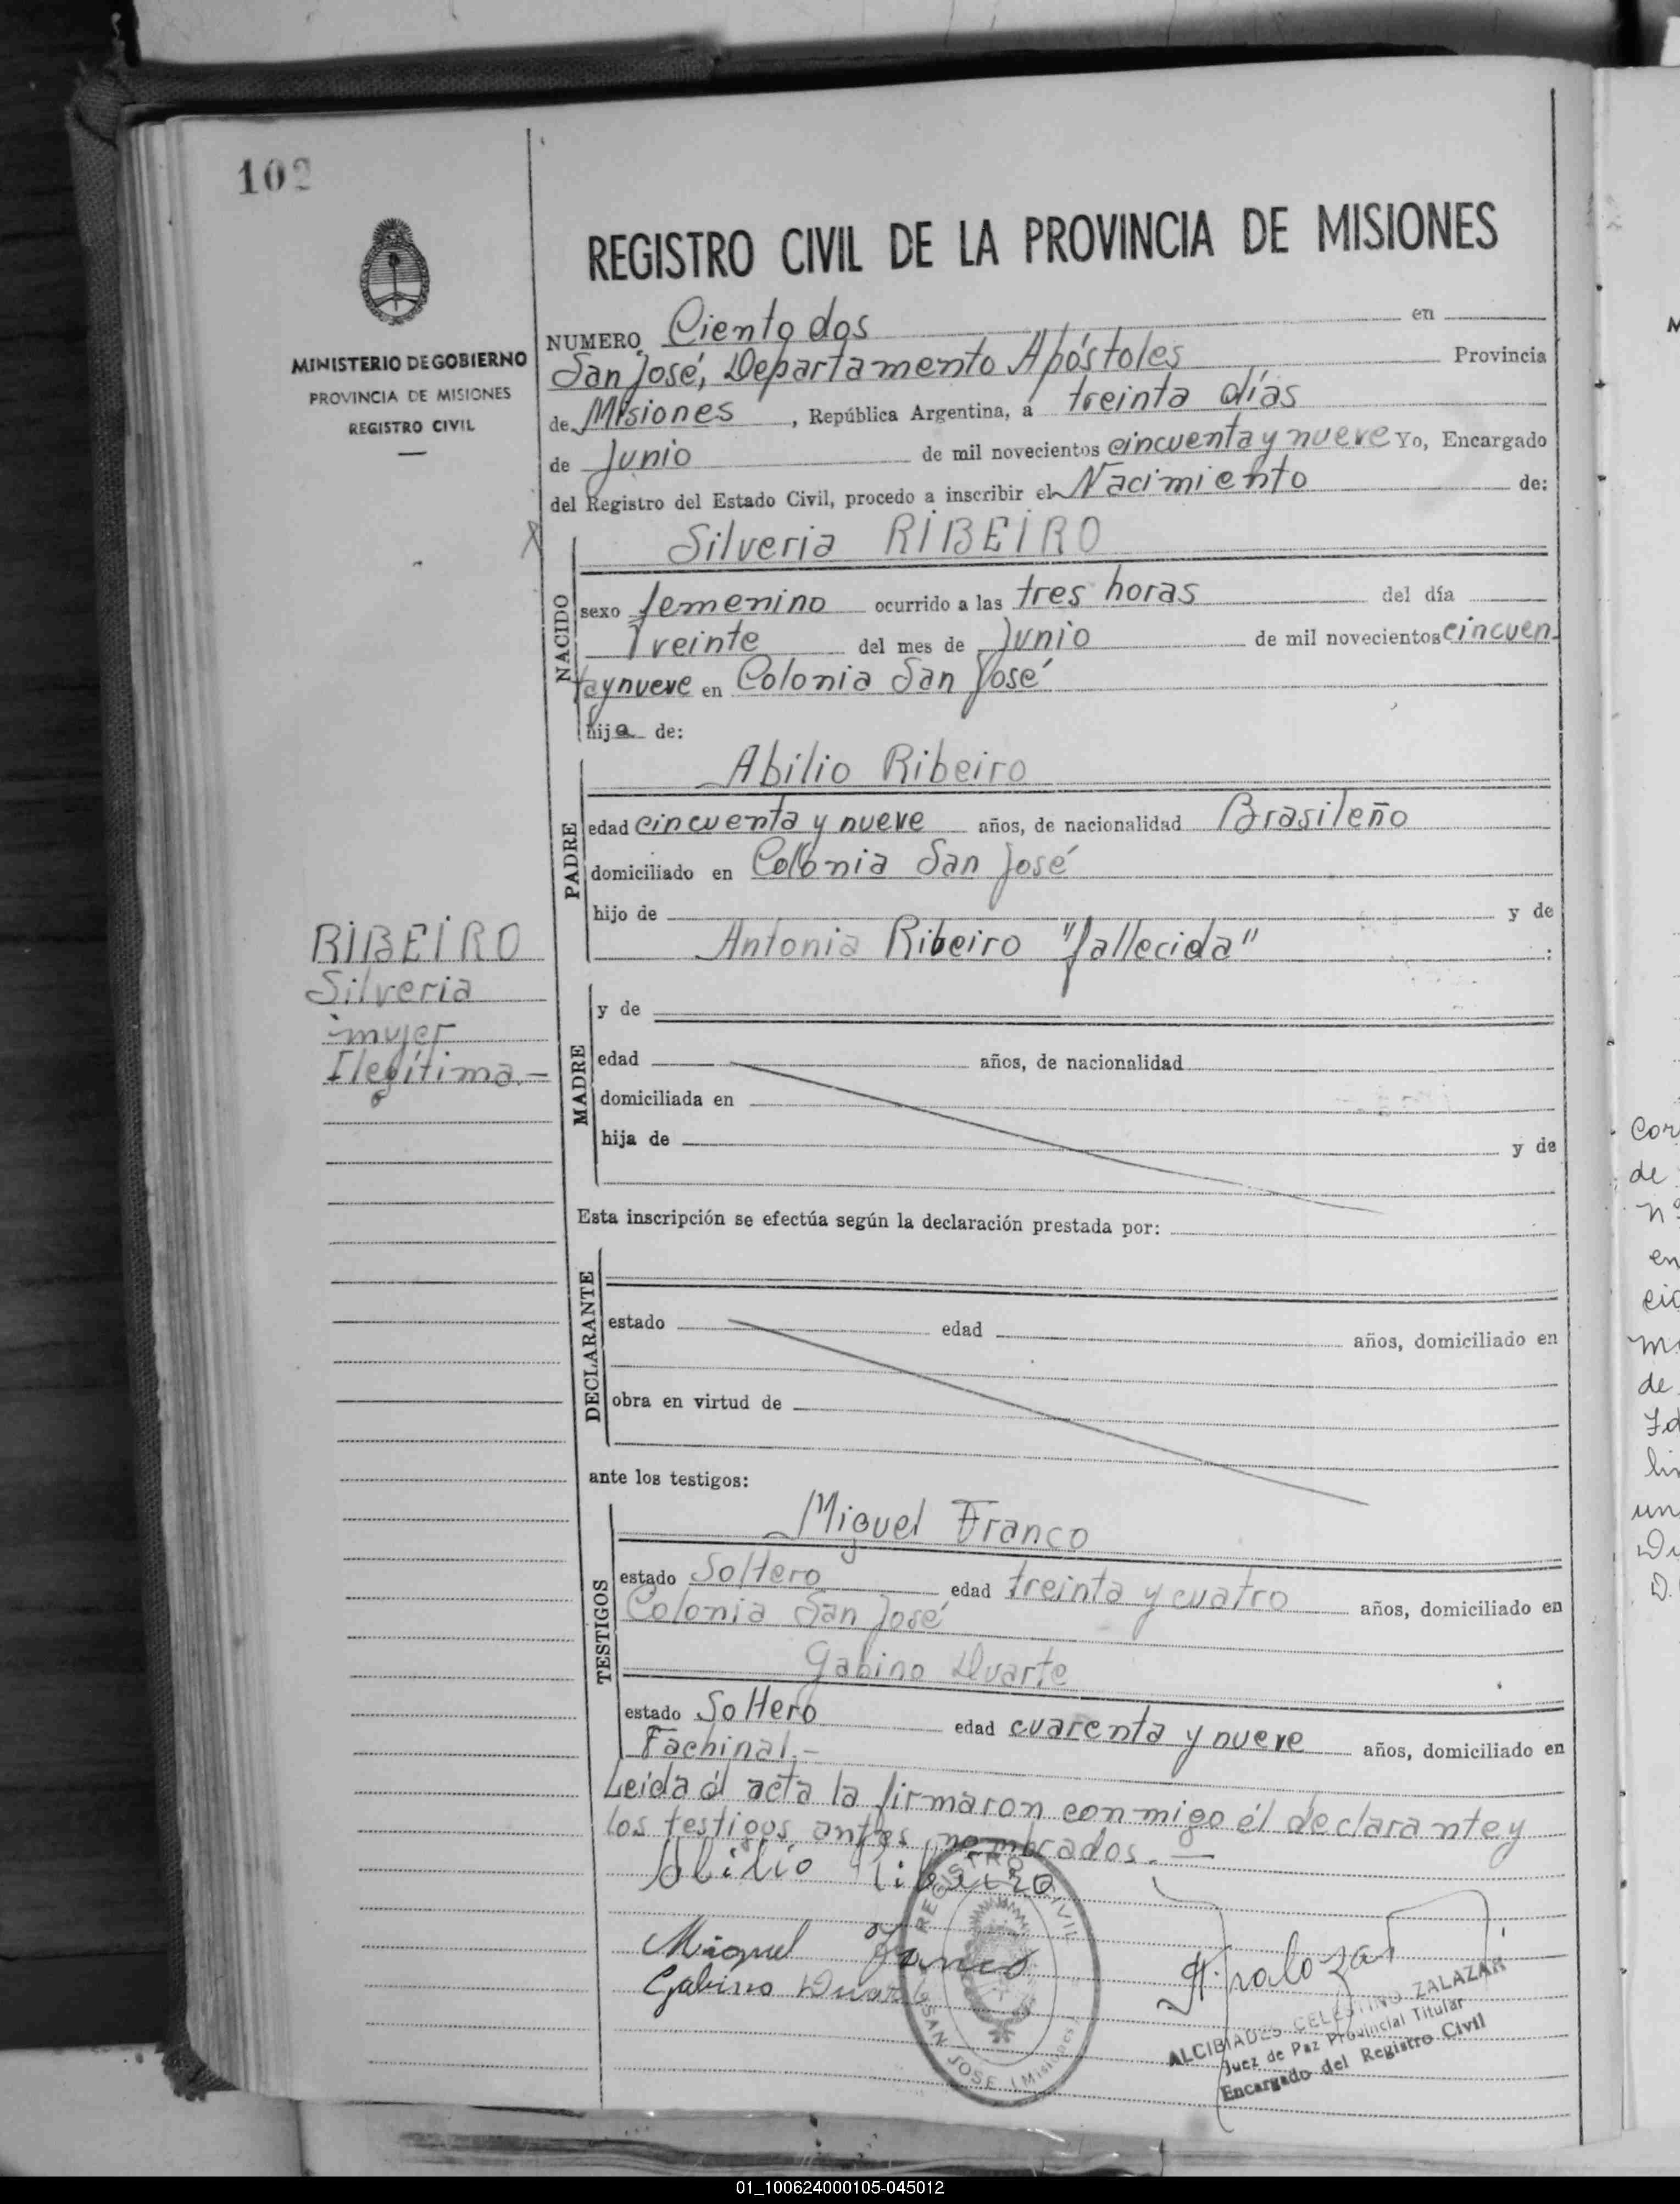 102
MINISTERIO DE GOBIERNO
PROVINCIA DE MISIONES
REGISTRO CIVIL
REGISTRO CIVIL DE LA PROVINCIA DE MISIONES
NUMERO Ciento dos en
San José, Departamento Apóstoles Provincia
de Misiones, República Argentina, a treinta días
de Junio de mil novecientos cincuenta y nueve Yo, Encargado
del Registro del Estado Civil, procedo a inscribir el Nacimiento de:
NACIDO
Silveria RIBEIRO
sexo femenino ocurrido a las tres horas del día
Treinte del mes de Junio de mil novecientos cincuen-
taynueve en Colonia San José
hija de:
PADRE
Abilio Ribeiro
edad cincuenta y nueve años, de nacionalidad Brasileño
domiciliado en Colonia San José
hijo de y de
Antonia Ribeiro "fallecida" :
RIBEIRO
Silveria
mujer
Ilegítima.-
MADRE
y de
edad años, de nacionalidad
domiciliada en
hija de y de
Esta inscripción se efectúa según la declaración prestada por:
DECLARANTE
estado edad años, domiciliado en
obra en virtud de
ante los testigos:
TESTIGOS
Miguel Franco
estado Soltero edad treinta y cuatro años, domiciliado en
Colonia San José
Gabino Duarte
estado Soltero edad cuarenta y nueve años, domiciliado en
Fachinal.-
Leida él acta la firmaron conmigo él declarante y
los testigos antes nombrados. —
Abilio Ribeiro
Miguel Franco
Gabino Duarte
REGISTRO CIVIL
SAN JOSE (Misiones)
ALCIBIADES CELESTINO ZALAZAR
Juez de Paz Provincial Titular
Encargado del Registro Civil
Cor
de
nº
en
cio
de
un
01_100624000105-045012